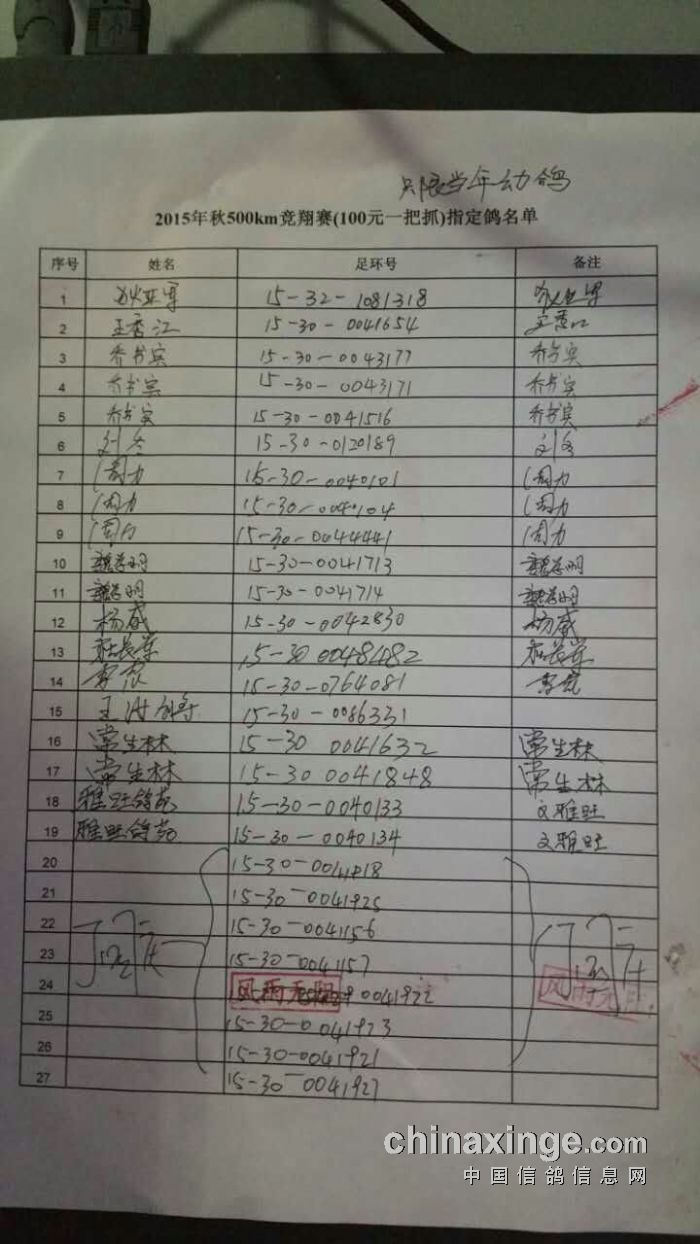 只限当年幼鸽
2015年秋500km竞翔赛(100元一把抓)指定鸽名单
序号 姓名 足环号 备注
1 15-32-1081318
2 王香江 15-30-0041654 王香江
3 乔书宾 15-30-0043177 乔书宾
4 乔书宾 15-30-0043171 乔书宾
5 乔书宾 15-30-0041516 乔书宾
6 刘冬 15-30-0120189 刘冬
7 周力 15-30-0040101 周力
8 周力 15-30-0040104 周力
9 周力 15-30-0044441 周力
10 15-30-0041713
11 15-30-0041714
12 杨威 15-30-0042830 杨威
13 杜长军 15-30 0048482 杜长军
14 15-30-0764081
15 15-30-0086331
16 常生林 15-30 0041632 常生林
17 常生林 15-30 0041848 常生林
18 雅旺鸽苑 15-30-0040133 文雅旺
19 雅旺鸽苑 15-30-0040134 文雅旺
20
21 15-30-0041925
22 15-30-0041156
23 15-30-0041157
24 风雨无阻 0041922 风雨无阻
25 15-30-0041923
26 15-30-0041921
27 15-30-0041927
chinaxinge.com
中国信鸽信息网